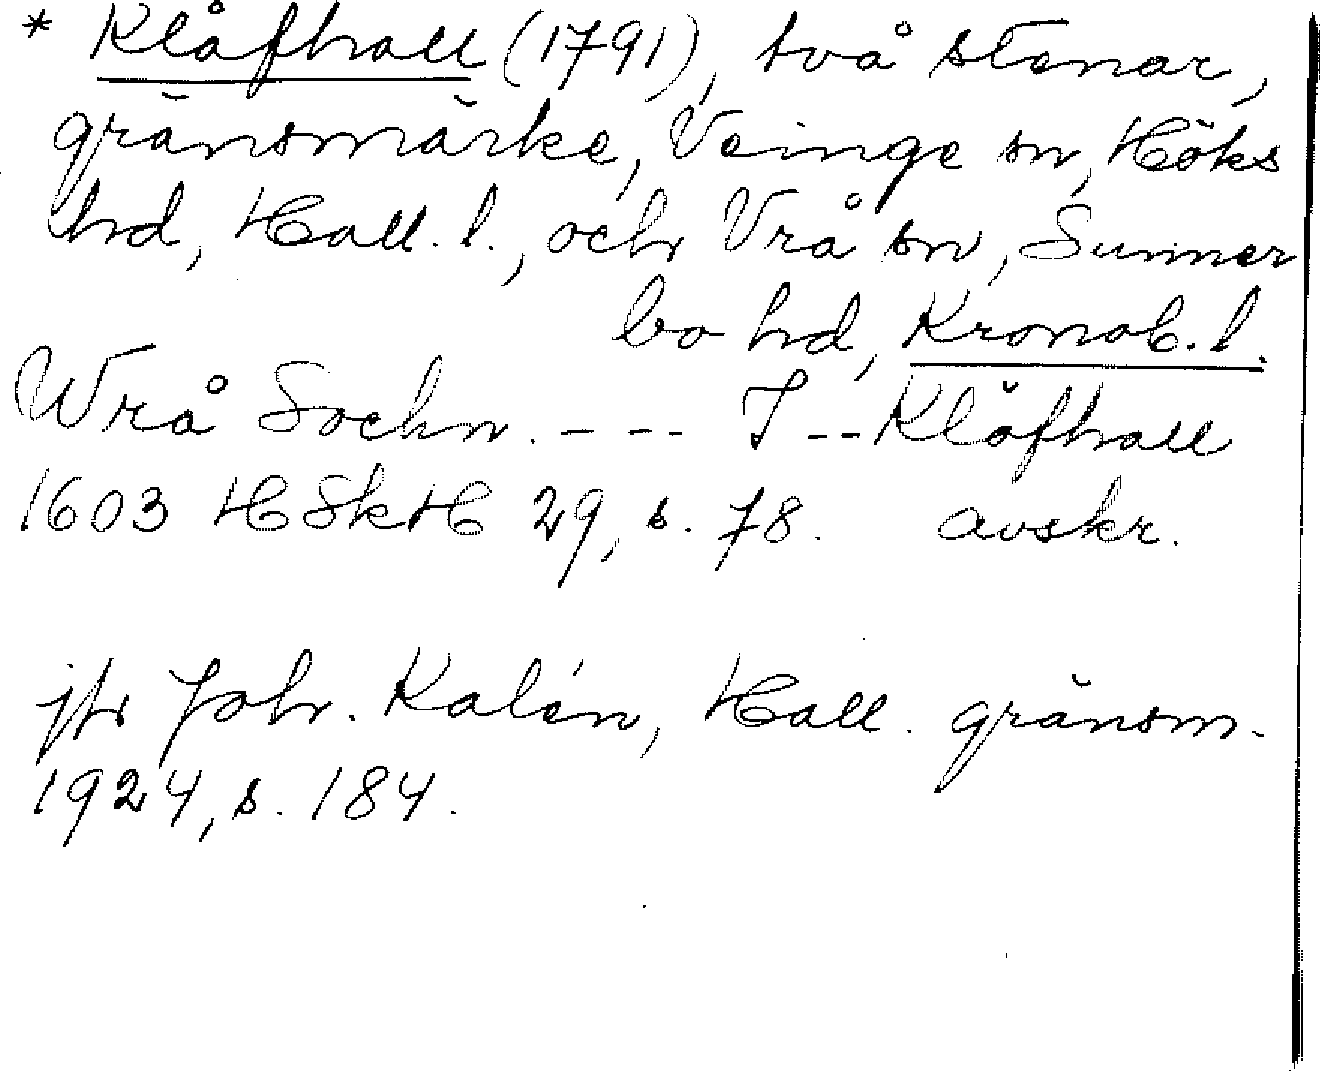 * Klåfhall (1791), två stenar,
gränsmärke, Veinge sn, Höks
hd, Hall. l., och Vrå sn, Sunner
bo hd, Kronob. l.
Wrå Sochn. - - - I - - Klåfhall
1603 HSkH 29, s. 78. avskr.
jfr Joh. Kalén, Hall. gränsm.
1924, s. 184.